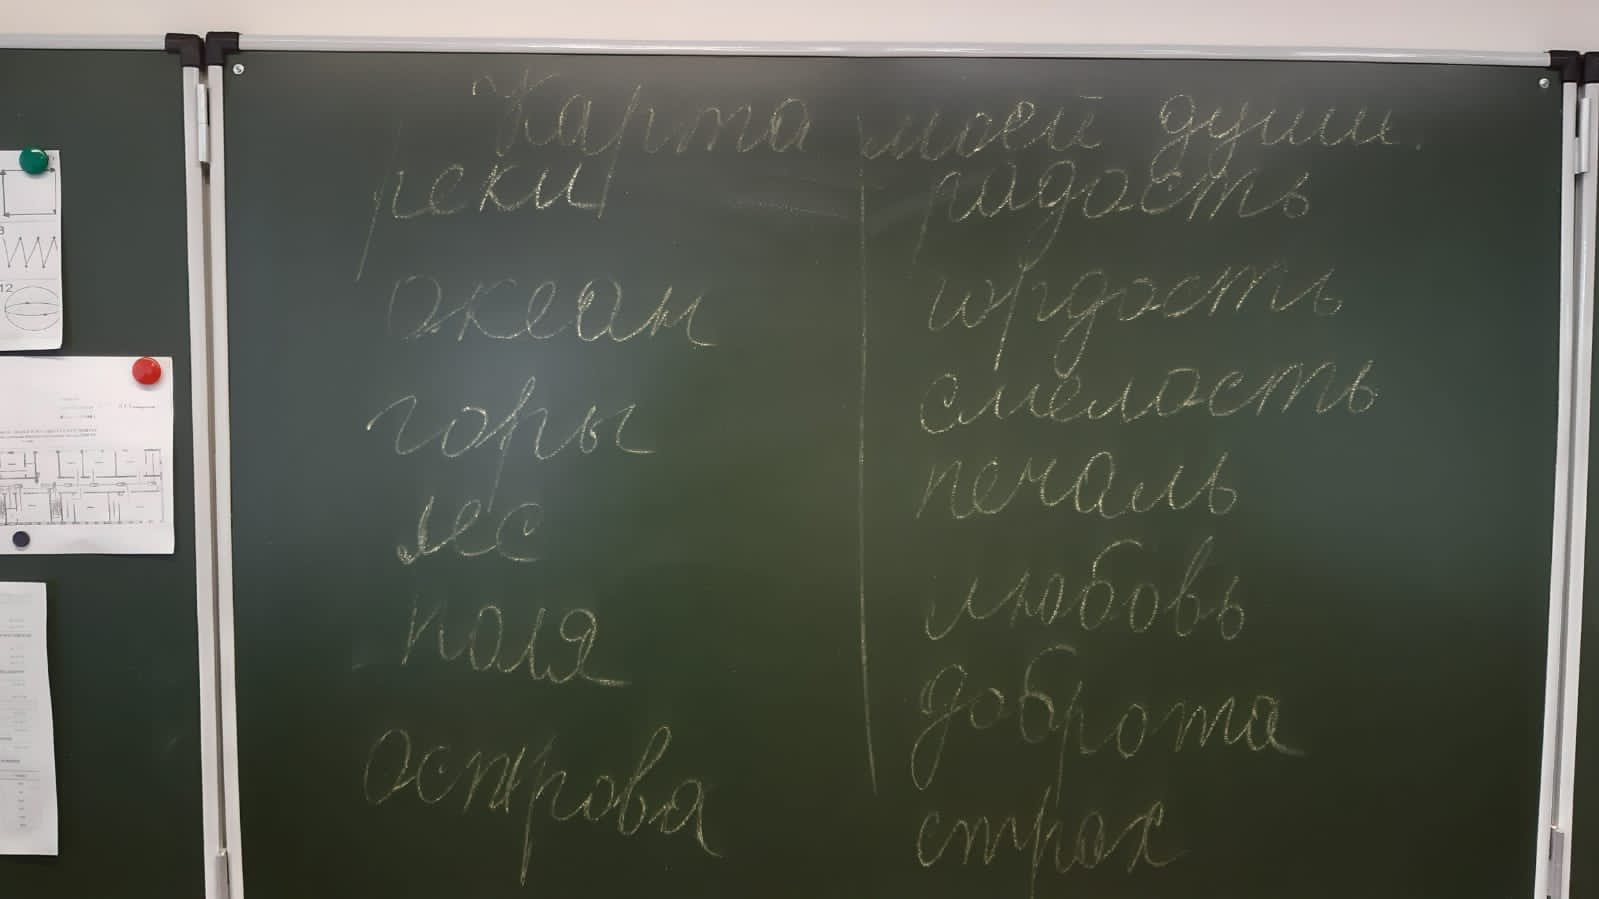 Карта моей души.
реки
океан
горы
лес
поля
острова
радость
гордость
смелость
печаль
любовь
доброта
страх
12